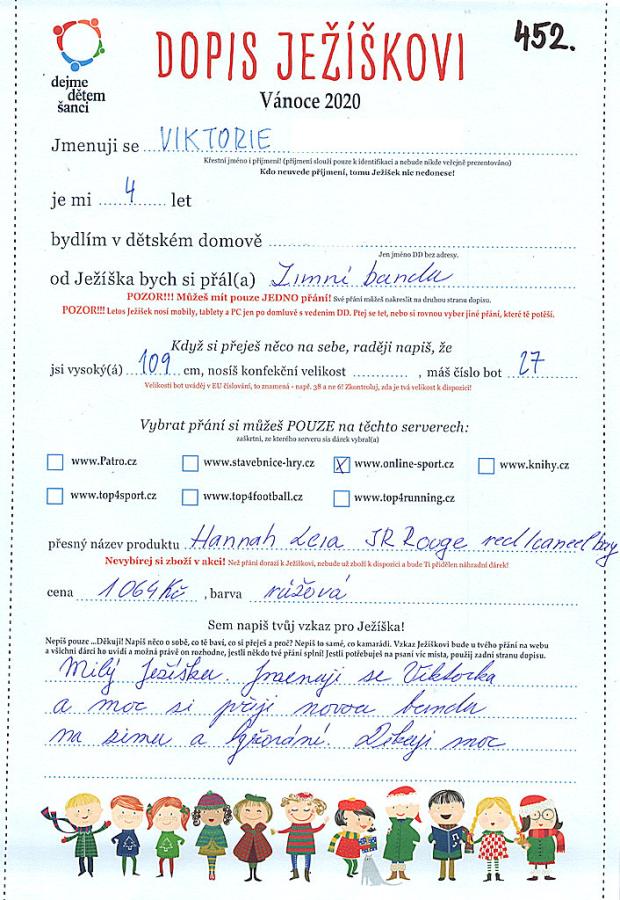 452.
dejme
dětem
šanci
DOPIS JEŽÍŠKOVI
Vánoce 2020
Jmenuji se VIKTORIE
Křestní jméno i příjmení! (příjmení slouží pouze k identifikaci a nebude nikde veřejně prezentováno)
Kdo neuvede příjmení, tomu Ježíšek nic nedonese!
je mi 4 let
bydlím v dětském domově
Jen jméno DD bez adresy.
od Ježíška bych si přál(a) Zimní bunda
POZOR!!! Můžeš mít pouze JEDNO přání! Své přání můžeš nakreslit na druhou stranu dopisu.
POZOR!!! Letos Ježíšek nosí mobily, tablety a PC jen po domluvě s vedením DD. Ptej se tet, nebo si rovnou vyber jiné přání, které tě potěší.
Když si přeješ něco na sebe, raději napiš, že
jsi vysoký(á) 109 cm, nosíš konfekční velikost , máš číslo bot 27
Velikosti bot uváděj v EU číslování, to znamená - např. 38 a ne 6! Zkontroluj, zda je tvá velikost k dispozici!
Vybrat přání si můžeš POUZE na těchto serverech:
zaškrtni, ze kterého serveru sis dárek vybral(a)
www.Patro.cz www.stavebnice-hry.cz X www.online-sport.cz www.knihy.cz
www.top4sport.cz www.top4football.cz www.top4running.cz
přesný název produktu Hannah Leia JR Rouge red/caneel bay
Nevybírej si zboží v akci! Než přání dorazí k Ježíškovi, nebude už zboží k dispozici a bude Ti přidělen náhradní dárek!
cena 1064Kč , barva růžová
Sem napiš tvůj vzkaz pro Ježíška!
Nepiš pouze ...Děkuji! Napiš něco o sobě, co tě baví, co si přeješ a proč? Nepiš to samé, co kamarádi. Vzkaz Ježíškovi bude u tvého přání na webu
a všichni dárci ho uvidí a možná právě on rozhodne, jestli někdo tvé přání splní! Jestli potřebuješ na psaní víc místa, použij zadní stranu dopisu.
Milý Ježíšku. Jmenuji se Viktorka
a moc si přeji novou bundu
na zimu a lyžování. Děkuji moc